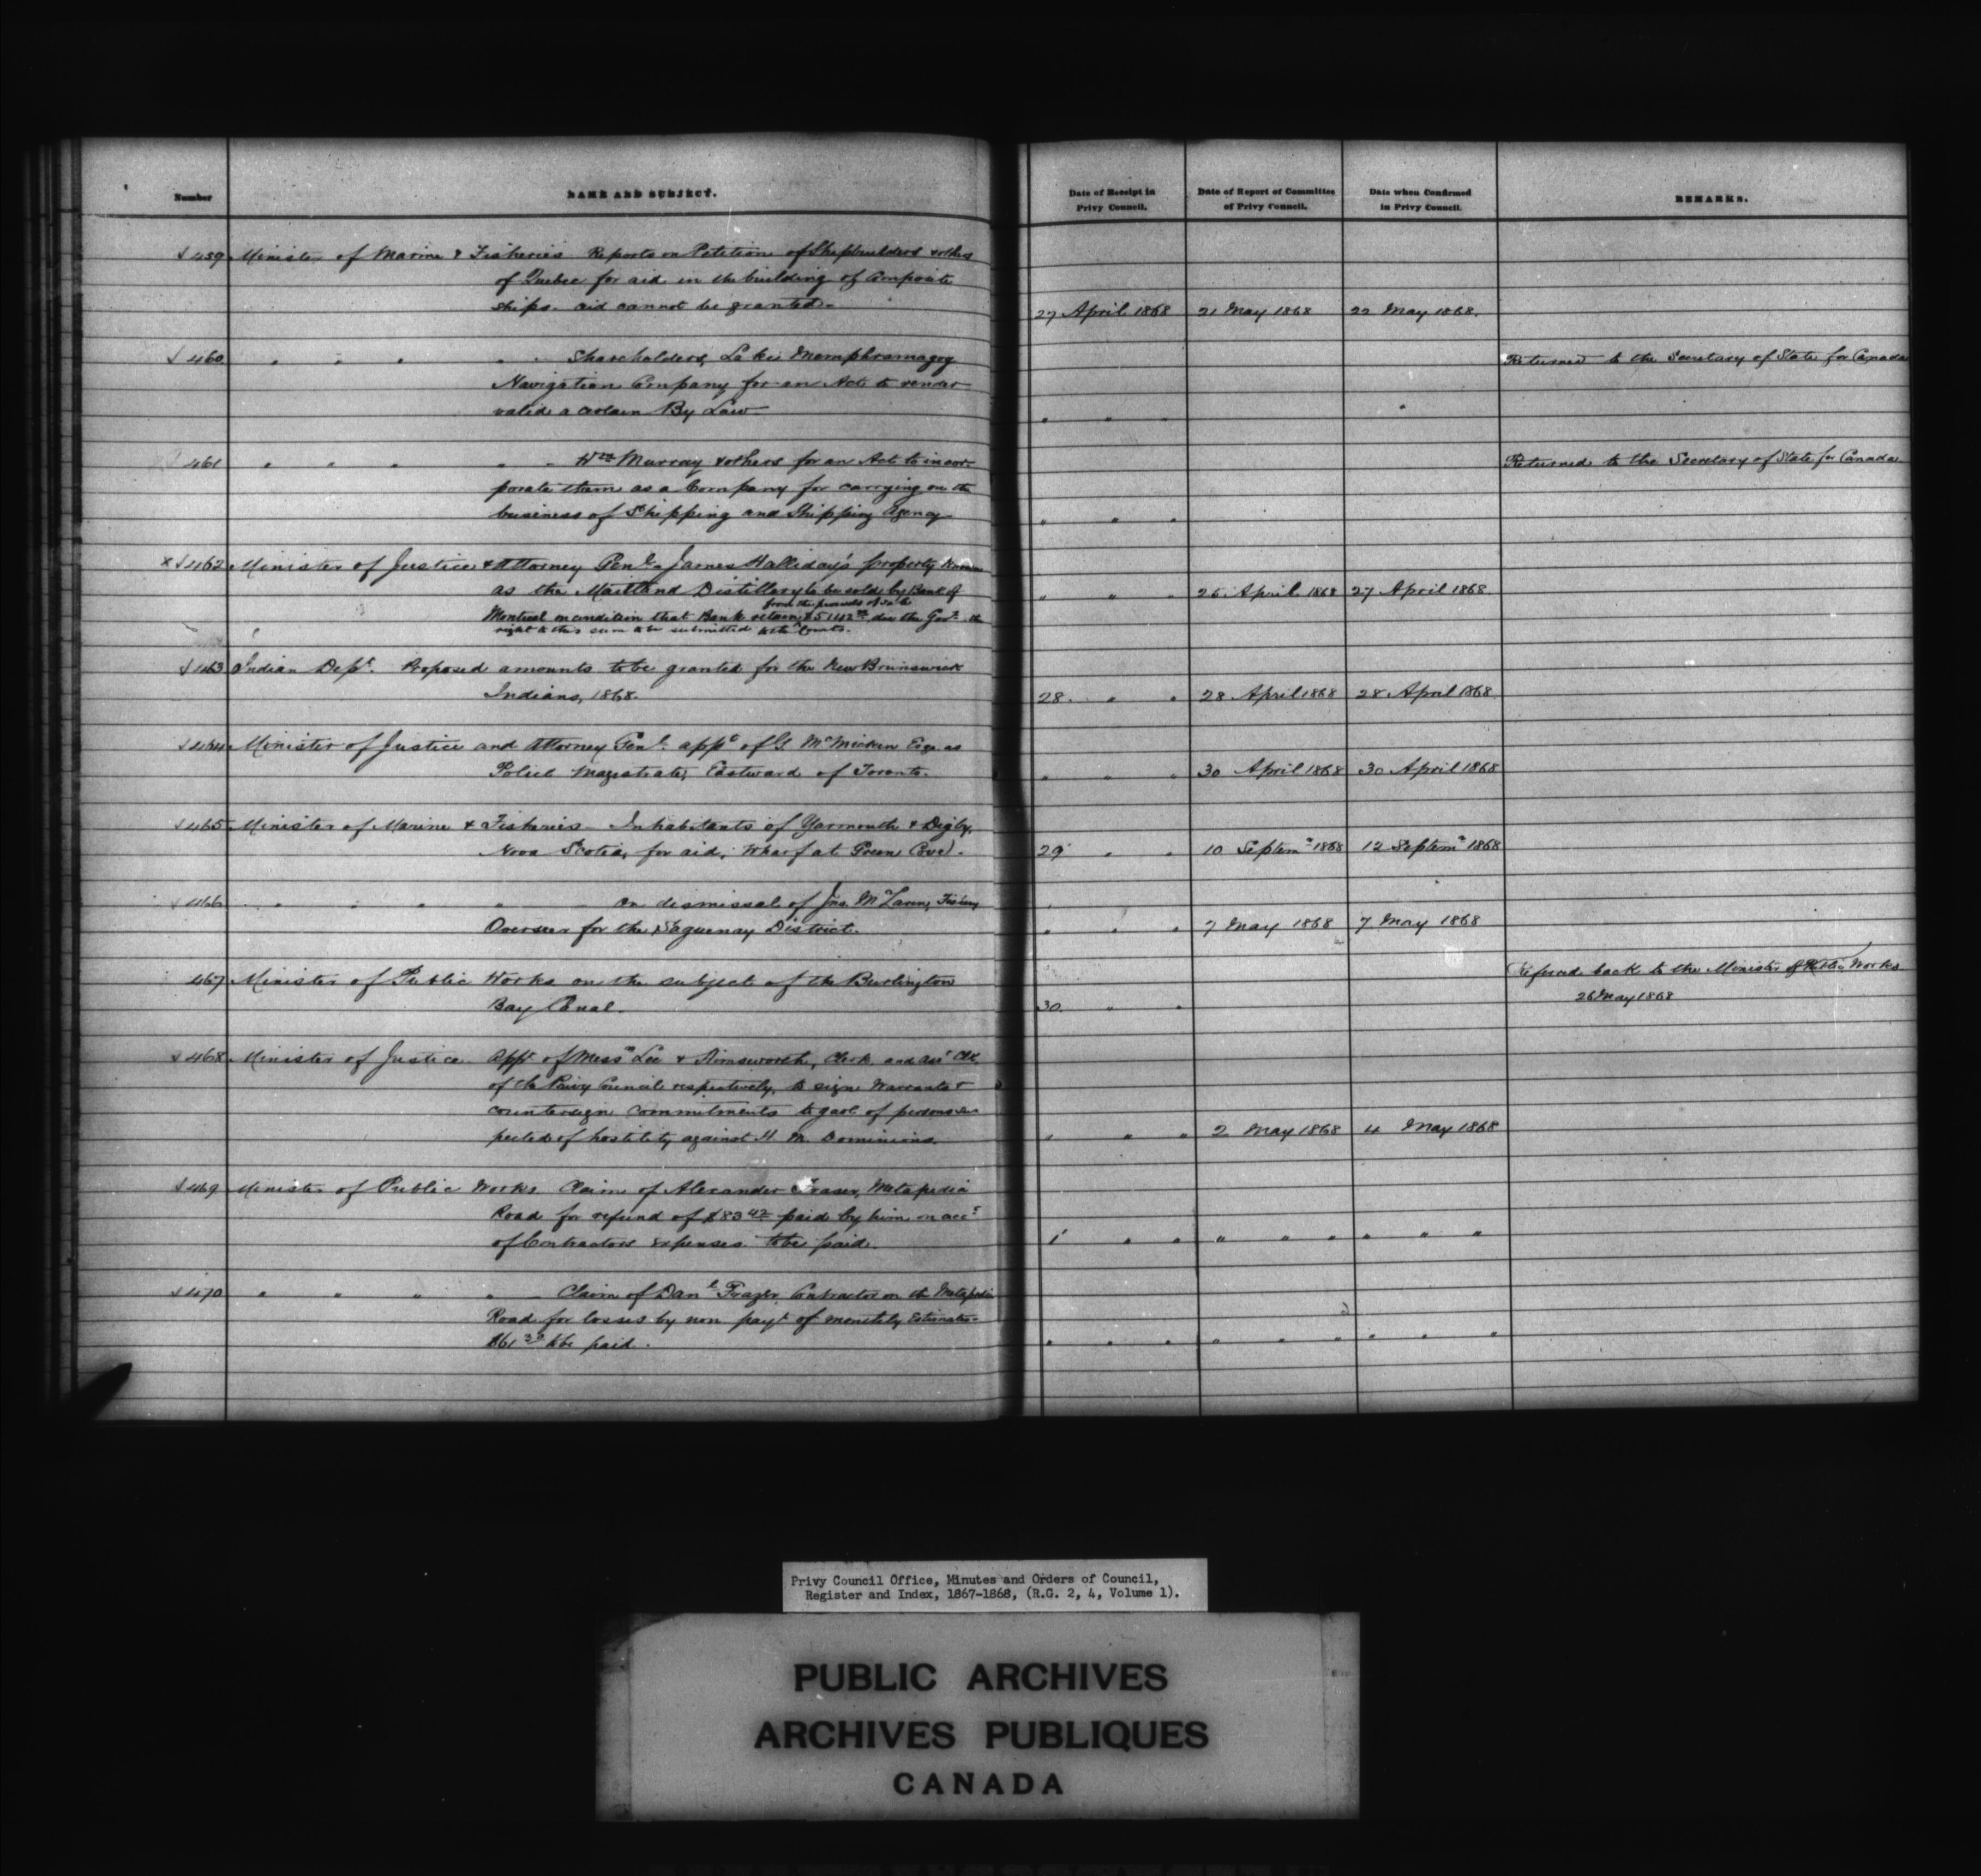 Number
NAME AND SUBJECT.
Date of Receipt in Privy Council.
Date of Report of Committee of Privy Council.
Date when Confirmed in Privy Council.
REMARKS.
459 Minister of Marine & Fisheries Reports on Petition of Shipbuilders & others
of Quebec for aid in the building of Composite
ships. aid cannot be granted. 27 April 1868 21 May 1868 22 May 1868.
460 " " " " " Shareholders, Lake Memphramagog Returned to the Secretary of State for Canada
Navigation Company for an Act to render
valid a certain By Law " " " "
461 " " " " " Wm Murray & others for an Act to incor- Returned to the Secretary of State for Canada
porate them as a Company for carrying on the
business of Shipping and Shipping Agency " " "
x 462 Minister of Justice & Attorney Genl. James Halliday's property known
as the Maitland Distillery to be sold by Bank of " " " 25 April 1868 27 April 1868
from the proceeds of sale
Montreal on condition that Bank retain due the Govt. the
right to this sum to be submitted to the Courts.
463 Indian Dept. Proposed amounts to be granted for the New Brunswick
Indians, 1868. 28. " " 28 April 1868 28 April 1868
464 Minister of Justice and Attorney Genl. appt of G. McMicken Esqr. as
Police Magistrate, Eastward of Toronto. " " " 30 April 1868 30 April 1868
465 Minister of Marine & Fisheries Inhabitants of Yarmouth & Digby,
Nova Scotia, for aid, Wharf at Green Cove. 29 " " 10 Septemr 1868 12 Septemr 1868
466 " " " " on dismissal of Jno. McLaren, Fishery
Overseer for the Saguenay District. " " " 7 May 1868 7 May 1868
467 Minister of Public Works on the subject of the Burlington Refered back to the Minister of Public Works
Bay Canal. 30. " " 26 May 1868
468 Minister of Justice appt of Messrs Lee & Himsworth, Clerk and Asst Clk
of the Privy Council respectively, to sign Warrants &
countersign commitments to gaol of persons sus-
pected of hostility against H. M. Dominions. " " " 2 May 1868 4 May 1868
469 Minister of Public Works Claim of Alexander Fraser, Metapedia
Road for refund of $83 42 paid by him on acct
of Contractors expenses to be paid. 1 " " " " " " " "
470 " " " " Claim of Danl. Frazer, Contractor on the Metapedia
Road for losses by non payt of monthly Estimates
to be paid. " " " " " " " " "
Privy Council Office, Minutes and Orders of Council,
Register and Index, 1867-1868, (R.G. 2, 4, Volume 1).
PUBLIC ARCHIVES
ARCHIVES PUBLIQUES
CANADA